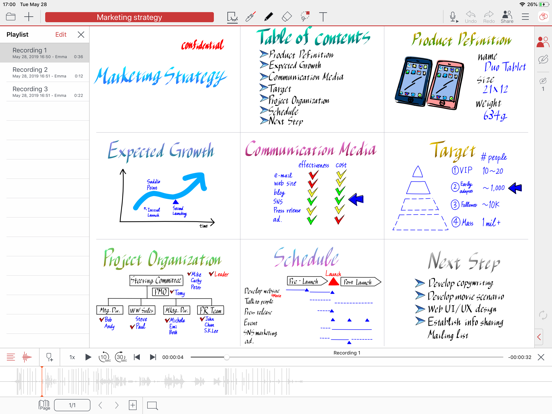 17:00 Tue May 28
26%
Marketing strategy
Playlist Edit
Recording 1
May 28, 2019 16:50 - Emma 0:36
Recording 2
May 28, 2019 16:51 - Emma 0:12
Recording 3
May 28, 2019 16:51 - Emma 0:22
Undo
Redo
Share
Menu
Confidential
Marketing Strategy
Table of contents
Product Definition
Expected Growth
Communication Media
Target
Project Organization
Schedule
Next Step
Product Definition
name
Duo Tablet
size
21×12
weight
634g
Expected Growth
Saddle
Point
Second
Launching
time
Communication Media
effectiveness cost
e-mail
web site
blog
SNS
Press release
ad.
Target
# people
① VIP 10~20
② Early adopter ~1,000
③ Follower ~10K
④ Mass 1mil+
Project Organization
Steering Committee
Mike
Cathy
Peter
Leader
PMO
Tony
Mfg. Div.
WW Sales
Mktg. Div.
PR Team
Bob
Andy
Steve
Paul
Michelle
Emi
Beth
John
Chan
S.K.Lee
Schedule
Launch
Pre-Launch
Post Launch
Develop website
Talk to people
Press release
Event
SNS marketing
ad.
Next Step
Develop copywriting
Develop movie scenario
Web UI/UX design
Establish info sharing
Mailing list
1x
10
30
00:00:04
Recording 1
-00:00:32
Page
1/1
1